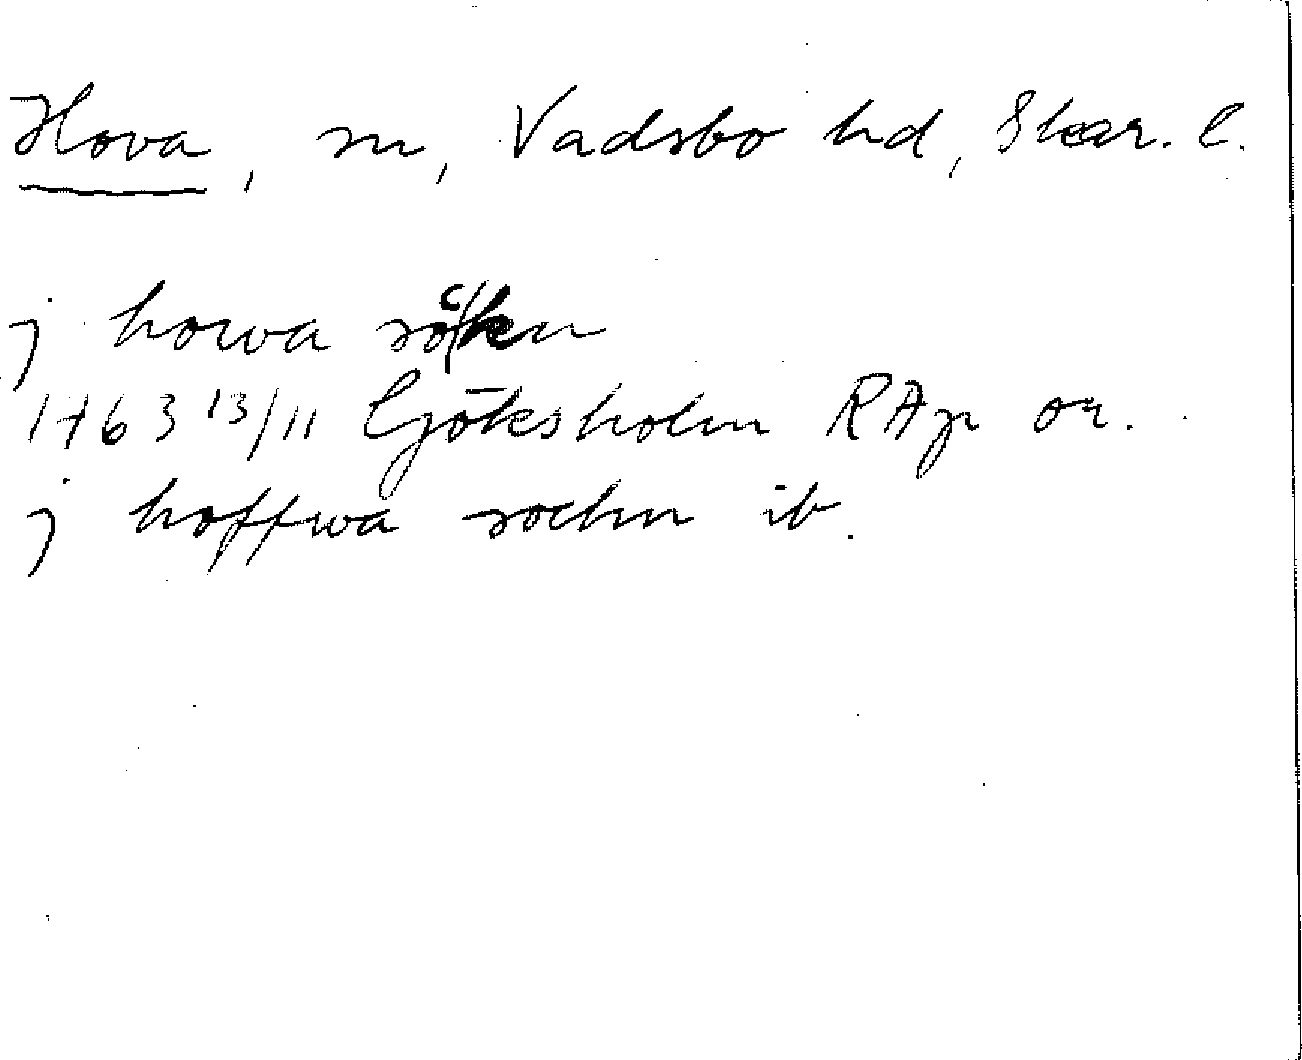 Hova, sn, Vadsbo hd, Skar. l.
j howa sokn
1463 13/11 Gjöksholm RAp or.
j hoffwa sochn ib.